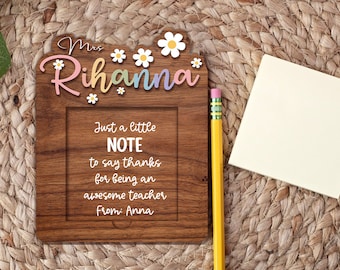 Mrs
Rihanna
Just a little
NOTE
to say thanks
for being an
awesome teacher
From: Anna